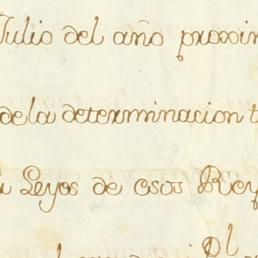 Julio del año proxim
de la determinacion t
Leyes de esos Rey